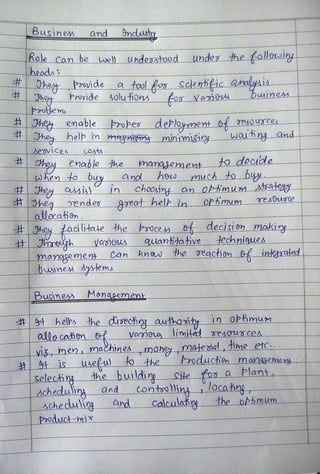 Business and Industry
Role can be well understood under the following
heads:
# They provide a tool for scientific analysis.
# They provide solutions for various business
problems
# They enable proper deployment of resources
# They help in minimizing waiting and
services costs
# They enable the management to decide
when to buy and how much to buy.
# They assist in choosing an optimum strategy
# They render great help in optimum resource
allocation.
# They facilitate the process of decision making.
# Through various quantitative techniques
management can know the reaction of integrated
business systems
Business Management
# It helps the directing authority in optimum
allocation of various limited resources
viz, men, machines, money, material, time etc..
# It is useful to the Production management:
selecting the building site for a plant,
scheduling and controlling, locating,
scheduling and calculating the optimum
product-mix